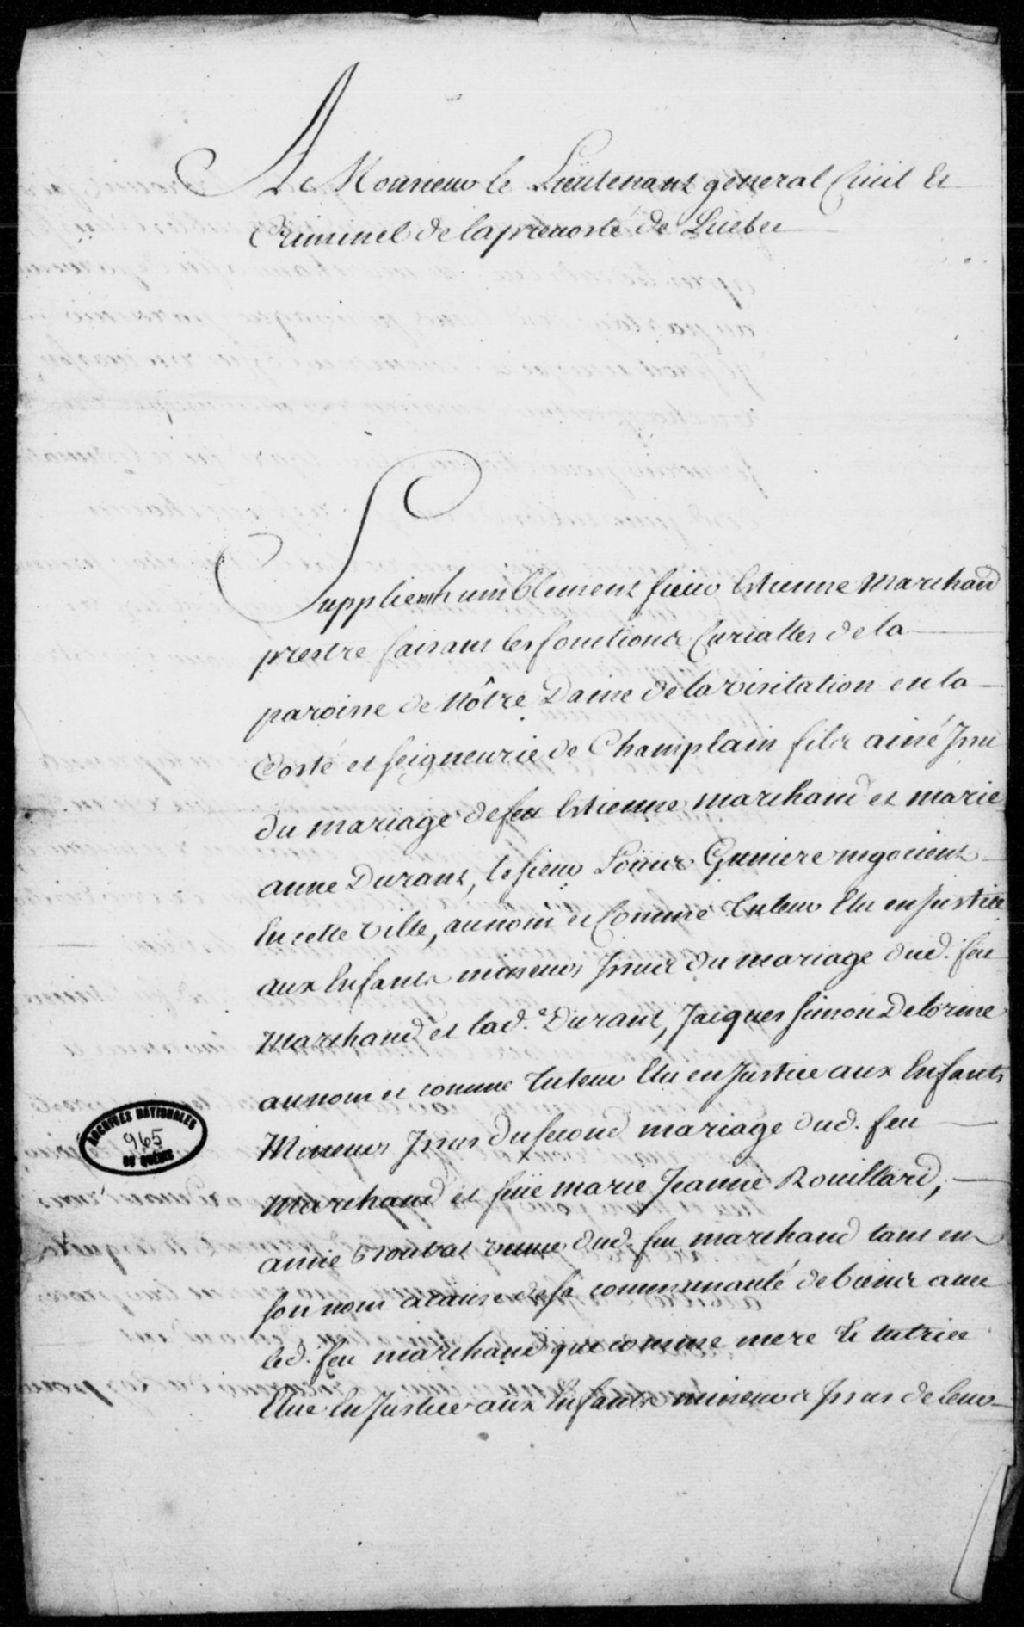 A Monsieur le Lieutenant general Ciuil Et
Criminel de la preuosté de Quebec
Supplient humblement sieur Estienne Marchand
prestre faisant les fonctions Curialles de la
paroisse de Nôtre Dame de la visitation en la
Costé et seigneurie de Champlain fils ainé Issu
du mariage de feu Estienne marchand et marie
anne Durant, le sieur Loüis Guniere negocient
En cette ville, au nom et Comme tuteur Elu en Justice
aux Enfants mineurs Issus du mariage dud. feu
Marchand et lad.e Durant, Jacques simon Delorme
au nom et comme tuteur Elu en Justice aux Enfants
Mineurs Issus du second mariage dud. feu
Marchand et feüe marie Jeanne Rouillard,
veuue dud. feu marchand tant en
son nom acause de sa communauté de biens auec
led. feu marchand que comme mere Et tutrice
Elue En Justice aux Enfants mineurs Issus de leur
ARCHIVES NATIONALES
965
DU QUÉBEC